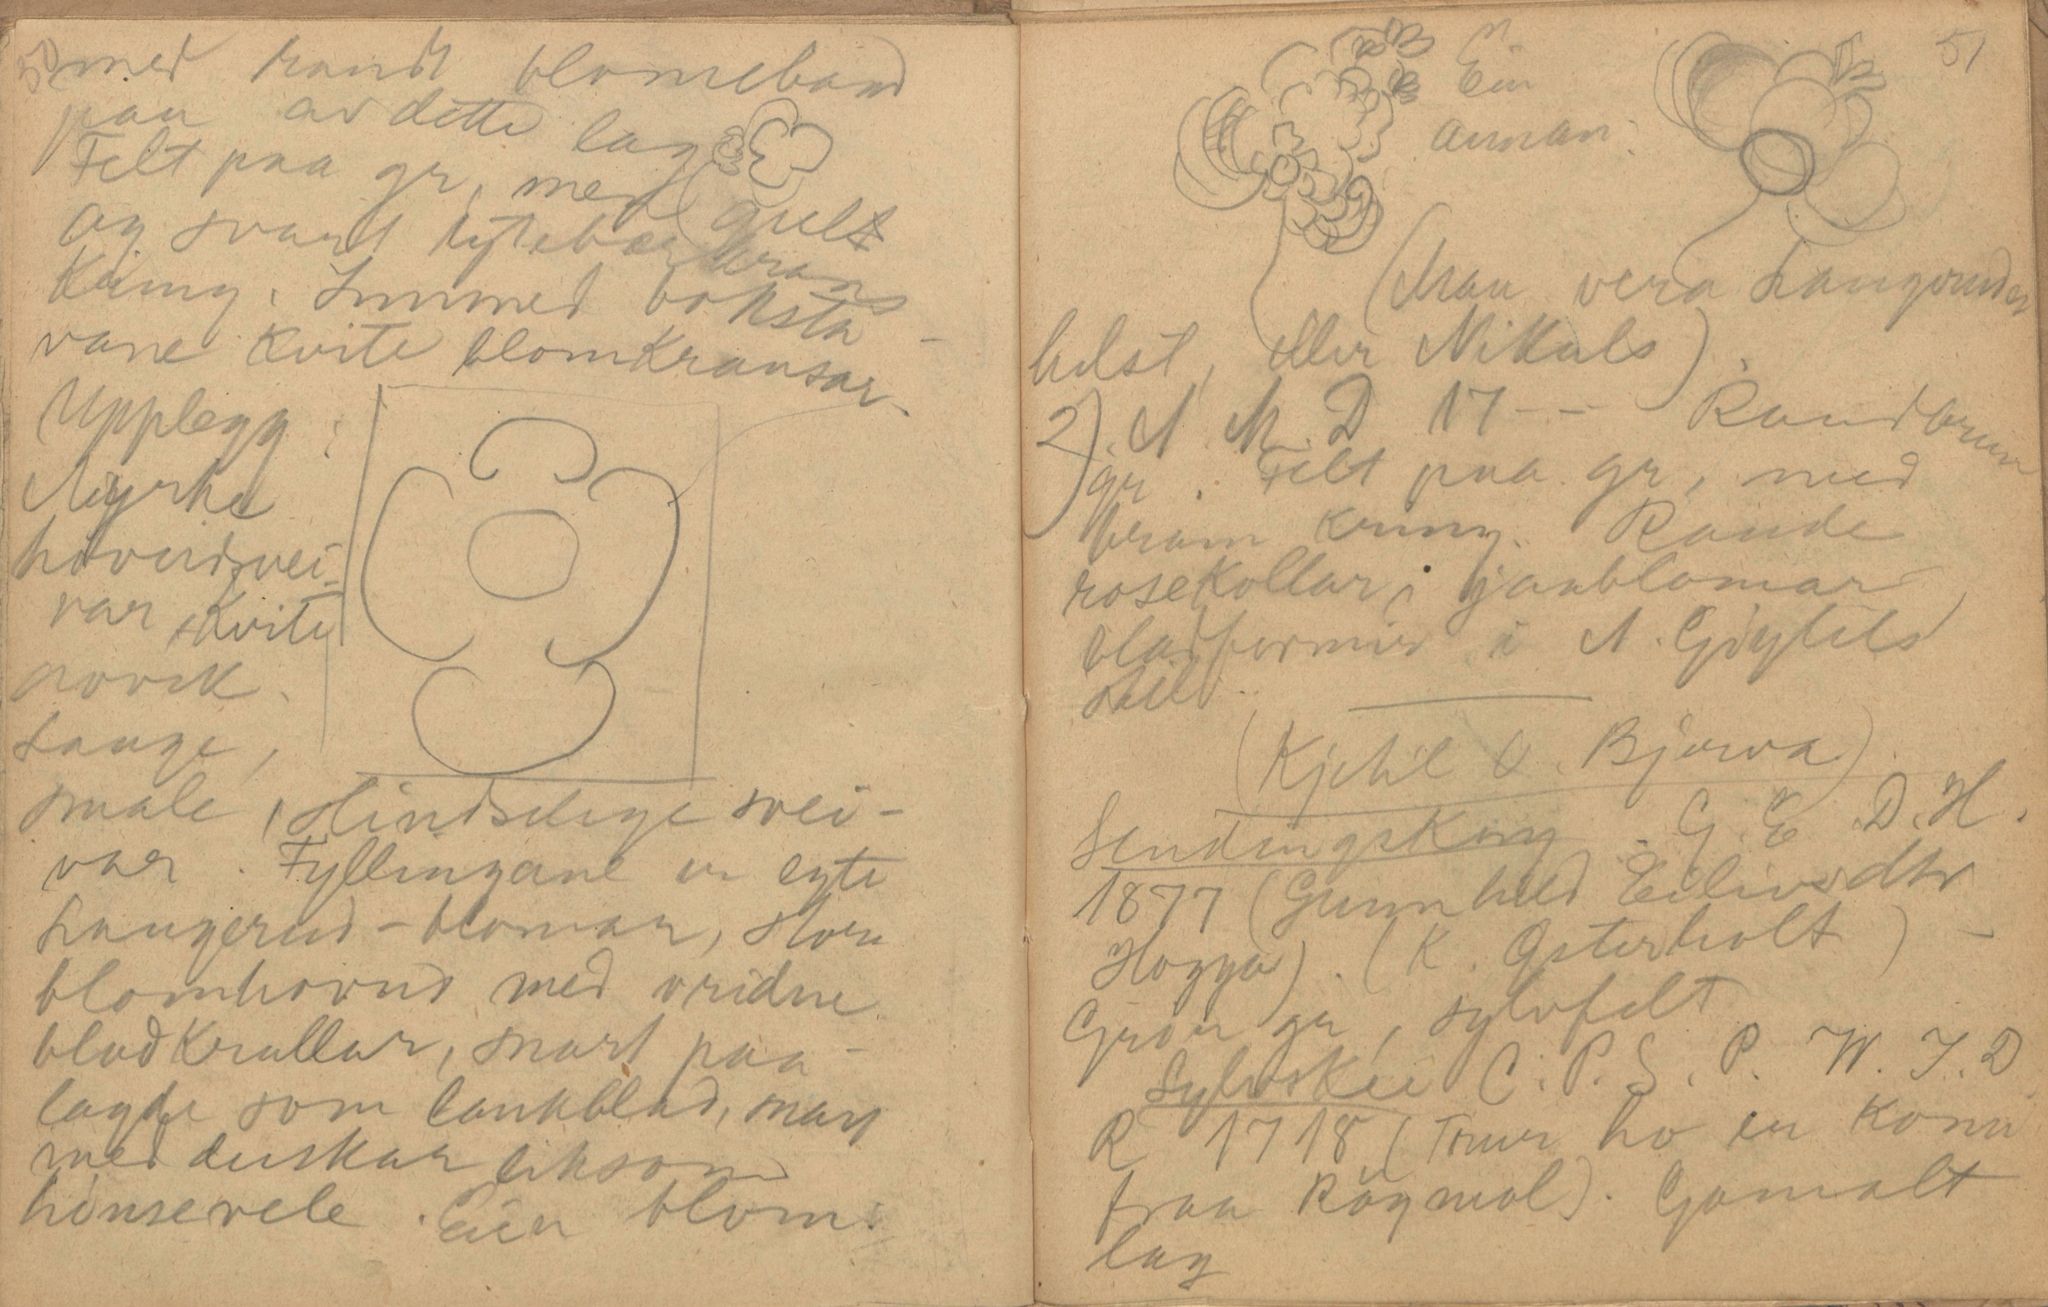 50
med raudt blomeband
paa av dette lag
Felt paa gr, med gult
og svart tytebærkrans
Kring. Innmed boksta-
vane kvite blomkransar.
Upplegg:
Myrke
hovudsvei-
var, kvite
aovik.
Lange,
smale, stindslege svei-
var. Fyllingane er egte
Langerud-blomar, store
blomhovud med vridne
bladkrullar, snart paa-
lagde som laukblad, snart
med duskar liksom
hønsevele. Ein blom:
51
Ein
annan:
(Maa vera Langerudar
helst, eller Nikuls).
2) A. M. D 17-- Raudbrun
gr. Felt paa gr, med
bram kring. Raude
rosekollar, janblomar,
bladformer i N. Gøytils
stil.
(Kjetil O. Bjerva)
Sendingskorg. G. E. D. H.
1877 (Gunnhild Eilivsdtr
Hogga). (K. Østerholt) -
Grøn gr, sylvfelt
Sylvskei C. P. S. P. W. I. D.
R 1718 (Truer ho er komi
fraa Rögnvol). Gamalt
lag